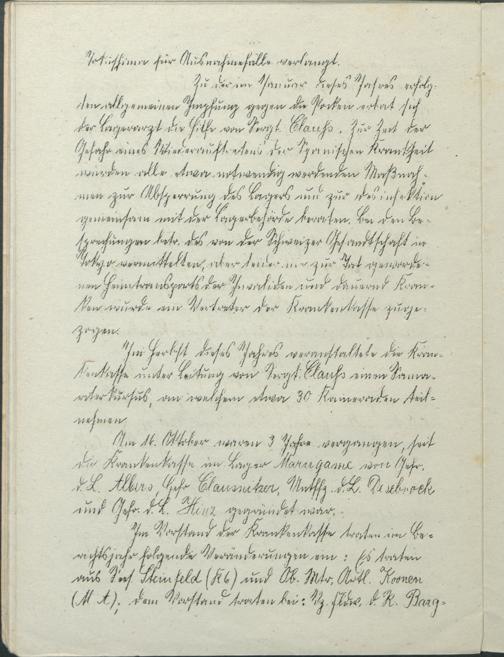 Tokushima für Ausnahmefälle verlangt.
Zu der im Januar dieses Jahres erfolg-
ten allgemeinen Impfung gegen die Pocken erbat sich
der Lagerarzt die Hilfe von Sergt. Clauss. Zur Zeit der
Gefahr eines Wiederauftretens der Spanischen Krankheit
wurden alle etwa notwendig werdenden Maßnah-
men zur Absperrung des Lagers und zur Desinfektion
gemeinsam mit der Lagerbehörde beraten. Bei den Be-
sprechungen betr. des von der Schweizer Gesandtschaft in
Tokyo vermittelten, aber leider nie zur Tat geworde-
nen Heimtransports der Invaliden und dauernd Kran-
ken wurde ein Vertreter der Krankenkasse zuge-
zogen.
Im Herbst dieses Jahres veranstaltete die Kran-
kenkasse unter Leitung von Sergt. Clauss einen Sama-
riterkursus, an welchem etwa 30 Kameraden teil-
nehmen.
Am 16. Oktober waren 3 Jahre vergangen, seit
die Krankenkasse im Lager Marugame von Gefr.
d. L. Albers, Gefr. Clausnitzer, Untffz. d. L.
und Gefr. d. L. Hinz gegründet war.
Im Vorstand der Krankenkasse traten im Be-
richtsjahr folgende Veränderungen ein: Es traten
aus Seef. Steinfeld (K6) und Ob. Mtr. Artl. Koonen
(M A); dem Vorstand traten bei: Vz. Fldw. d. R. Barg-